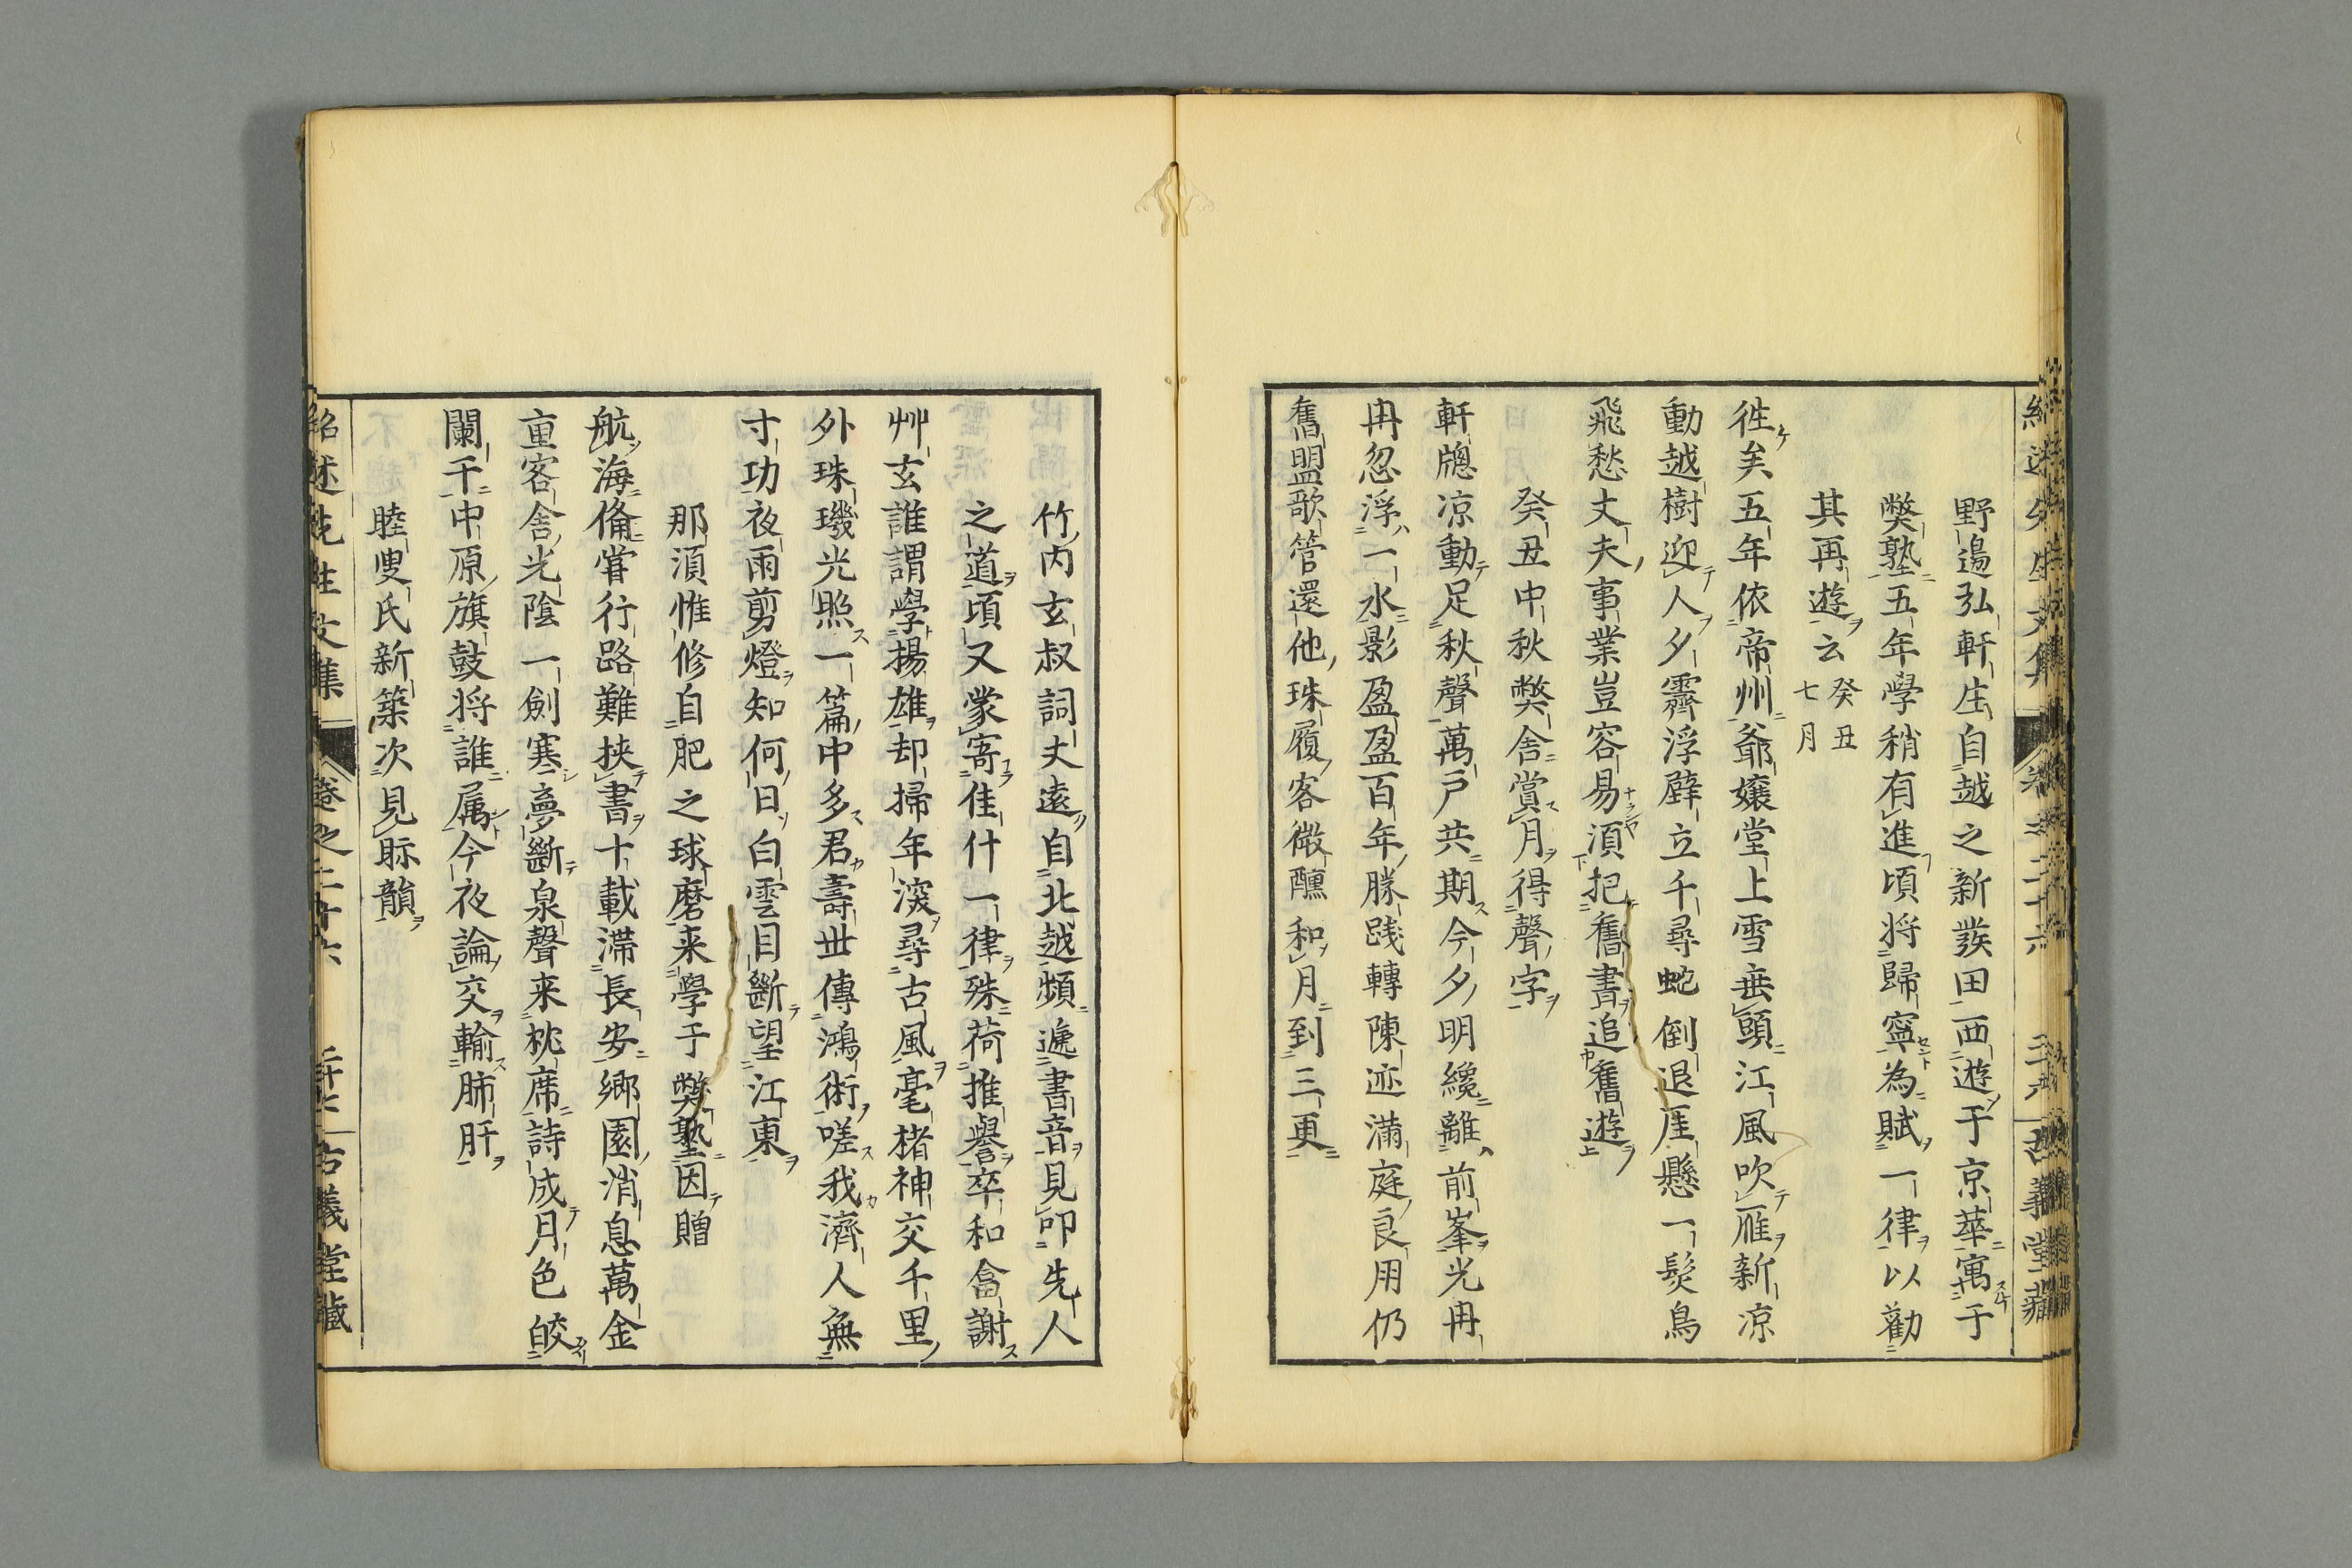 野邉弘軒庄自越之新發田西遊于京華寓于
弊塾五年學稍有進頃將歸寧為賦一律以勸
其再遊云癸丑七月
徃矣五年依帝州爺嬢堂上雪垂頭江風吹雁新凉
動越樹迎人夕霽浮壁立千尋蛇倒退厓懸一髮鳥
飛愁丈夫事業豈容易須把舊書追舊遊
癸丑中秋弊舎賞月得聲字
軒牕凉動足秋聲萬戸共期今夕明纔離前峯光冉
冉忽浮一水影盈盈百年勝踐轉陳迹滿庭良用仍
舊盟歌管還他珠履客微醺和月到三更
竹内玄叔詞丈遠自北越頻逓書音見叩先人
之道頃又蒙寄佳什一律殊荷推譽卒和畣謝
艸玄誰謂學揚雄却掃年深尋古風毫楮神交千里
外珠璣光照一篇中多君壽世傳鴻術嗟我濟人無
寸功夜雨剪燈知何日白雲目斷望江東
那須惟修自肥之球磨来學于弊塾因贈
航海俻甞行路難挾書十載滞長安郷園消息萬金
重客舎光陰一劍寒夢斷泉聲来枕席詩成月色皎
闌干中原旗鼓將誰属今夜論交輸肺肝
睦叟氏新築次見眎韻
紹述先生文集 卷之二十六 古義堂藏